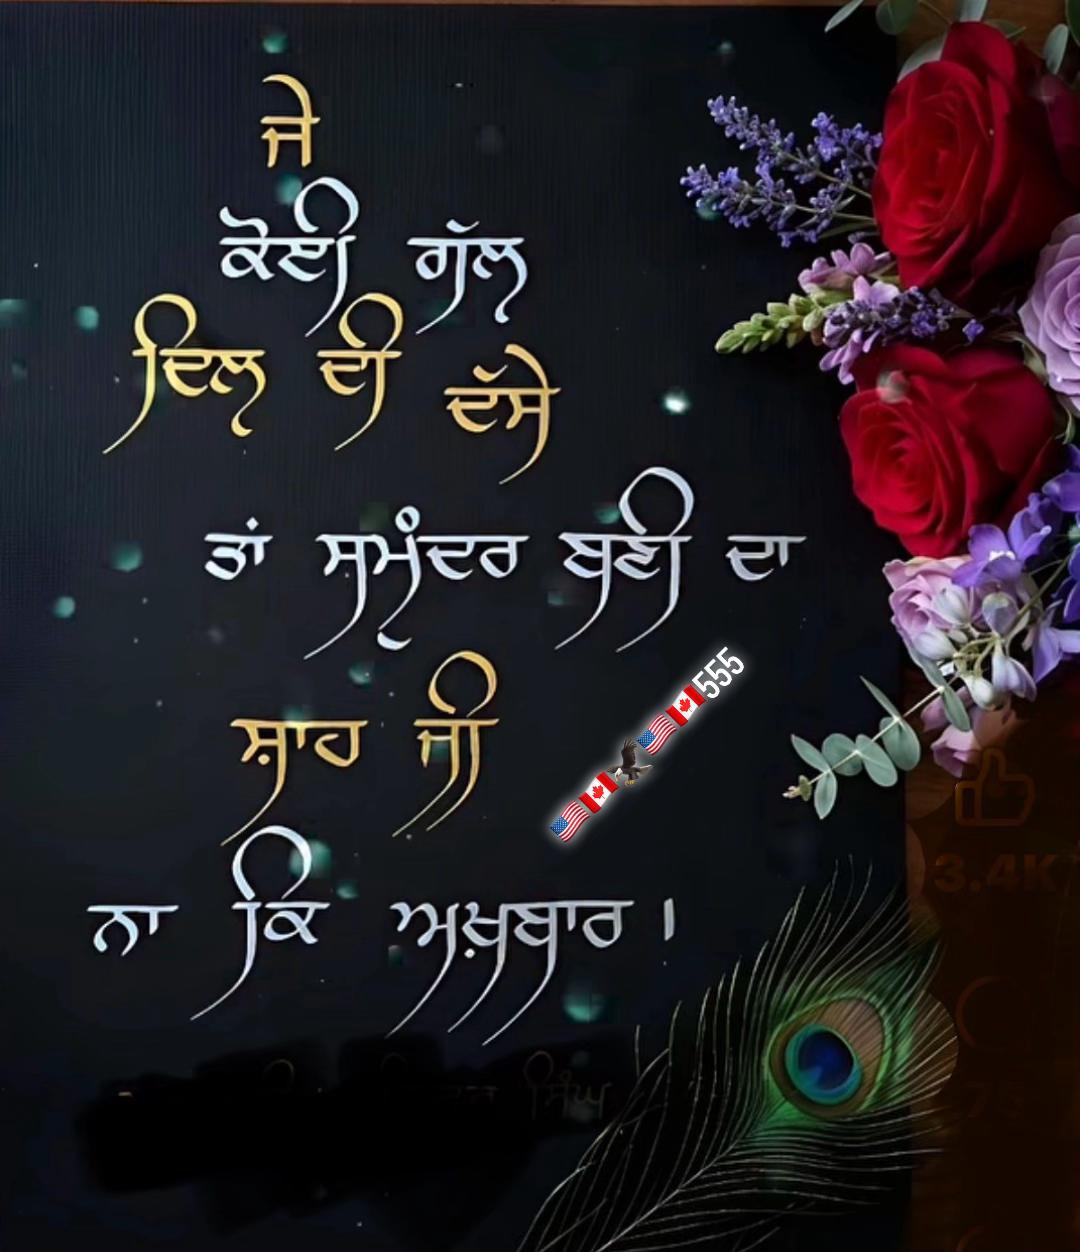 ਜੇ
ਕੋਈ ਗੱਲ
ਦਿਲ ਦੀ ਦੱਸੇ
ਤਾਂ ਸਮੁੰਦਰ ਬਣੀ ਦਾ
ਸ਼ਾਹ ਜੀ
555
ਨਾ ਕਿ ਅਖ਼ਬਾਰ।
ਸਿੰਘ
3.4K